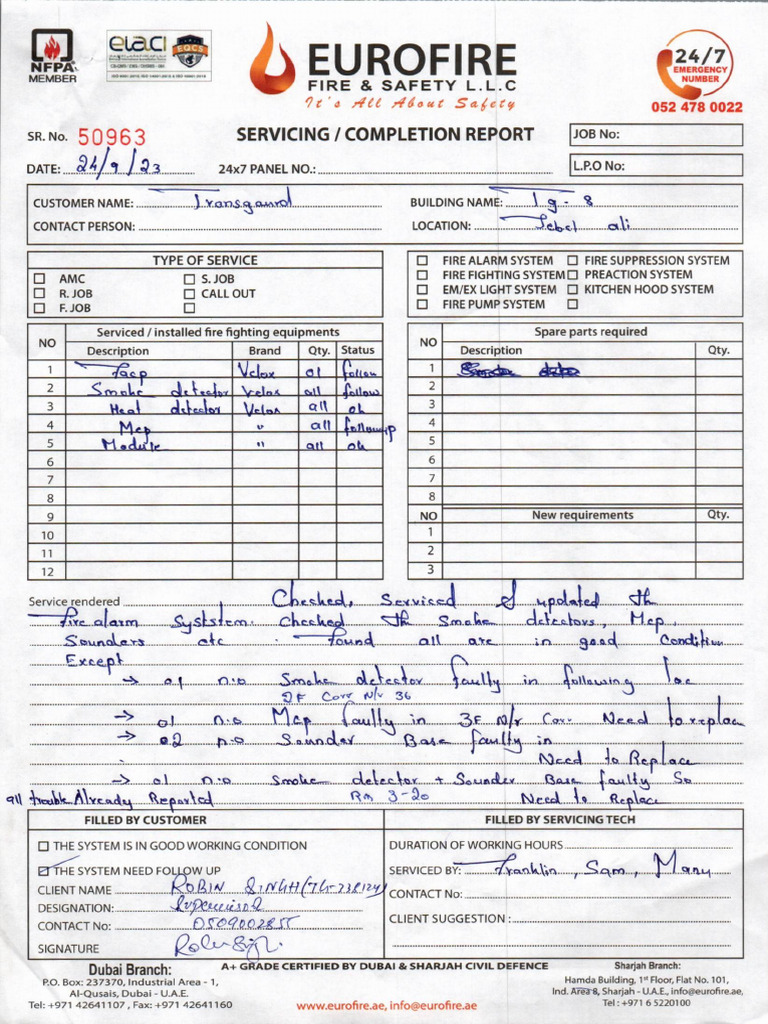 NFPA
MEMBER
eiaci
EQCS
EUROFIRE
FIRE & SAFETY L.L.C
It's All About Safety
24/7
EMERGENCY
NUMBER
052 478 0022
SR. No. 50963
SERVICING / COMPLETION REPORT
JOB No:
DATE: 24/9/23
24x7 PANEL NO.:
L.P.O No:
CUSTOMER NAME: Transgaurd
BUILDING NAME: Tg - 8
CONTACT PERSON:
LOCATION: Jebel ali
TYPE OF SERVICE
AMC S. JOB
R. JOB CALL OUT
F. JOB
FIRE ALARM SYSTEM FIRE SUPPRESSION SYSTEM
FIRE FIGHTING SYSTEM PREACTION SYSTEM
EM/EX LIGHT SYSTEM KITCHEN HOOD SYSTEM
FIRE PUMP SYSTEM
NO Serviced / installed fire fighting equipments
Description Brand Qty. Status
1 Facp Velox 01 follow
2 Smoke detector Velox all follow
3 Heat detector Velox all ok
4 Mcp " all followup
5 Module " all ok
6
7
8
9
10
11
12
NO Spare parts required
Description Qty.
1
2
3
4
5
6
7
8
NO New requirements Qty.
1
2
3
Service rendered Checked, Serviced & updated th
Fire alarm Syststem. Checked th Smoke detectors, Mcp,
Sounders etc. Found all are in good Condition
Except
→ 01 n.o Smoke detector faulty in following loc
2F Corr N/r 36
→ 01 n.o Mcp faulty in 3F N/r Corr. Need to replace
→ 02 n.o Sounder Base faulty in
Need to Replace
→ 01 n.o Smoke detector + Sounder Base faulty So
all trouble Already Reported Rm 3-20 Need to Replace
FILLED BY CUSTOMER
THE SYSTEM IS IN GOOD WORKING CONDITION
THE SYSTEM NEED FOLLOW UP
CLIENT NAME ROBIN SINGH (TG-238124)
DESIGNATION: Supervisor
CONTACT No: 0509002855
SIGNATURE
FILLED BY SERVICING TECH
DURATION OF WORKING HOURS
SERVICED BY: Franklin, Sam, Manu
CONTACT No:
CLIENT SUGGESTION :
Dubai Branch:
P.O. Box: 237370, Industrial Area - 1,
Al-Qusais, Dubai - U.A.E.
Tel: +971 42641107 , Fax: +971 42641160
A+ GRADE CERTIFIED BY DUBAI & SHARJAH CIVIL DEFENCE
www.eurofire.ae, info@eurofire.ae
Sharjah Branch:
Hamda Building, 1st Floor, Flat No. 101,
Ind. Area 8, Sharjah - U.A.E., info@eurofire.ae,
Tel : +971 6 5220100